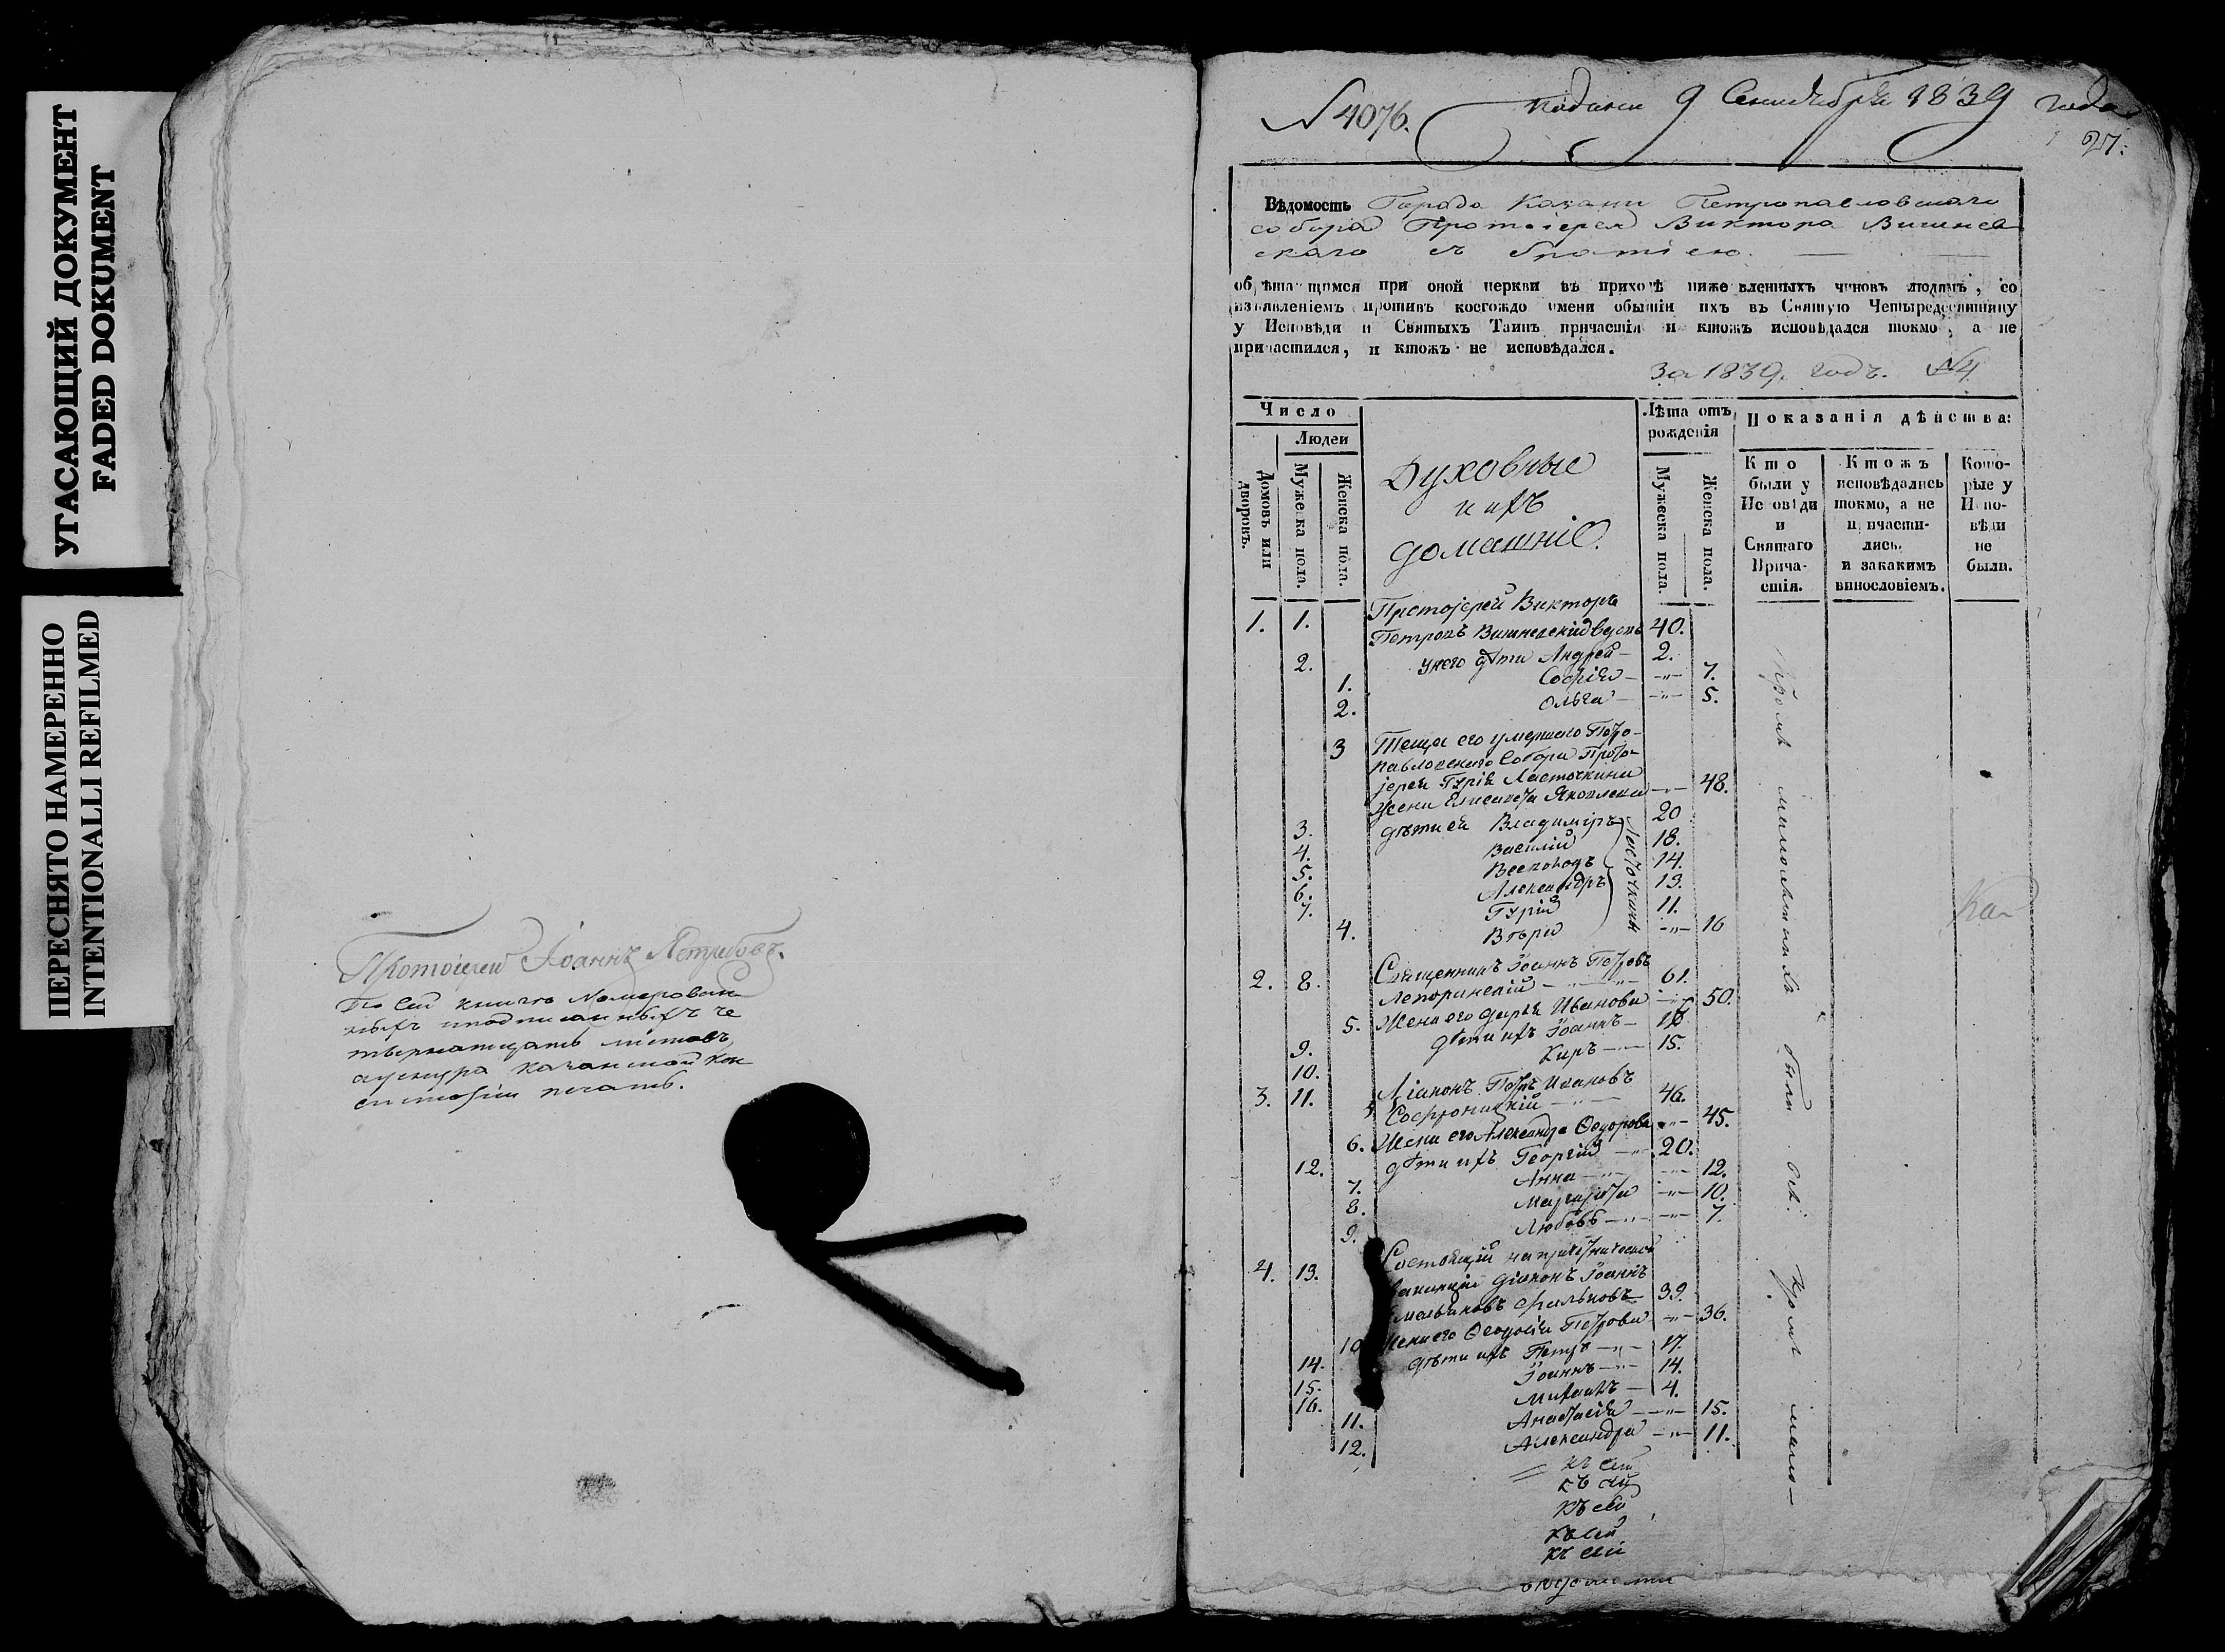 УГАСАЮЩИЙ ДОКУМЕНТ
FADED DOKUMENT
ПЕРЕСНЯТО НАМЕРЕННО
INTENTIONALLI REFILMED
Протоіерей Іоаннъ Ястребовъ.
По сей книгѣ
листовъ,
печать.
N 4076.
9 Сентября 1839 года
27.
Вѣдомость Города Казани Петропавловскаго
собора Протоіерея Виктора Вишнев
скаго съ братіею.
обрѣтающимся при оной церкви въ приходѣ нижеявленныхъ чиновъ людямъ, со
изъявленіемъ противъ коегождо имени обытіи ихъ въ Святую Четыредесятницу
у Исповѣди и Святыхъ Таинъ причастія и ктожъ исповѣдался токмо, а не
причастился, и ктожъ не исповѣдался.
За 1839. годъ. №4
Число
Людей
Домовъ или дворовъ.
Мужеска пола.
Женска пола.
Духовные
и ихъ
домашніе.
Лѣта отъ
рожденія
Мужеска пола.
Женска пола.
Показанія дѣйства:
Кто
были у
Исповѣди
и
Святаго
Прича-
стія.
Ктожъ
исповѣдались
токмо, а не
причасти-
лись.
и закакимъ
винословіемъ.
Кото-
рые у
Испо-
вѣди
не
были.
1. 1. Протоіерей Викторъ
Петровъ Вишневскій вдовъ 40.
2. у него дѣти Андрей — 2.
1. Софія — -"- 7.
2. Ольга — -"- 5.
3 Теща его умершаго Петро-
павловскаго Собора Прото-
іерея Гурія Ласточкина
жена Елисавета Яковлева -"- 48.
3. дѣти ея Владиміръ 20
4. Василій 18.
5. Всеволодъ 14.
6. Александръ 13.
7. Гурій 11.
4. Вѣра -"- 16
Ласточкины
2. 8. Священникъ Іоаннъ Петровъ
Лепоринскій 61.
5. Жена его Дарья Иванова -"- 50.
9. дѣти ихъ Іоаннъ —
10. Киръ — 15.
3. 11. Діаконъ Петръ Ивановъ
Софроницкій 46.
6. Жена его Александра Ѳедорова -"- 45.
12. дѣти ихъ Георгій 20.
7. Анна -"- 12.
8. Маргарита -"- 10.
9. Любовь -"- 7.
4. 13. Состоящій на причетнической
ваканціи діаконъ Іоаннъ
39.
10 Жена его Ѳеодосія Петрова -"- 36.
14. дѣти ихъ Петръ 17.
15. Іоаннъ 14.
16. Михаилъ — 4.
11. Анастасія -"- 15.
12. Александра -"- 11.
Кромѣ малолѣтнихъ были всѣ.
Кромѣ мало-
Ка
къ сей
къ сей
къ сей
къ сей
къ сей
вѣдомости